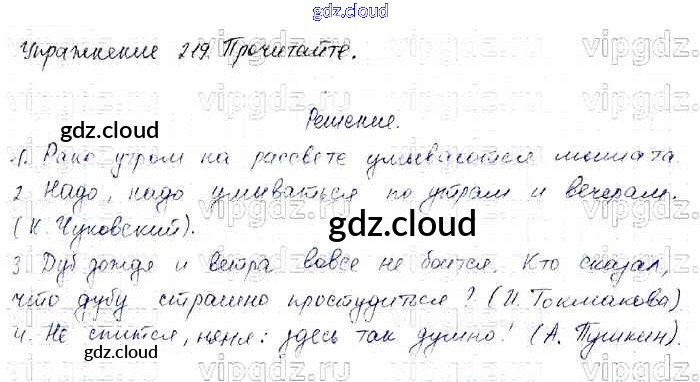 gdz.cloud
Упражнение 219. Прочитайте.
vipgdz.ru vipgdz.ru vipgdz.ru vipgdz
Решение.
gdz.cloud
1. Рано утром на рассвете умываются мышата.
2 Надо, надо умываться по утрам и вечерам.
(К. Чуковский).
gdz.cloud
3 Дуб дождя и ветра вовсе не боится. Кто сказал,
что дубу страшно простудиться? (И. Токмакова)
4. Не спится, няня: здесь так душно! (А. Пушкин).
gdz.cloud